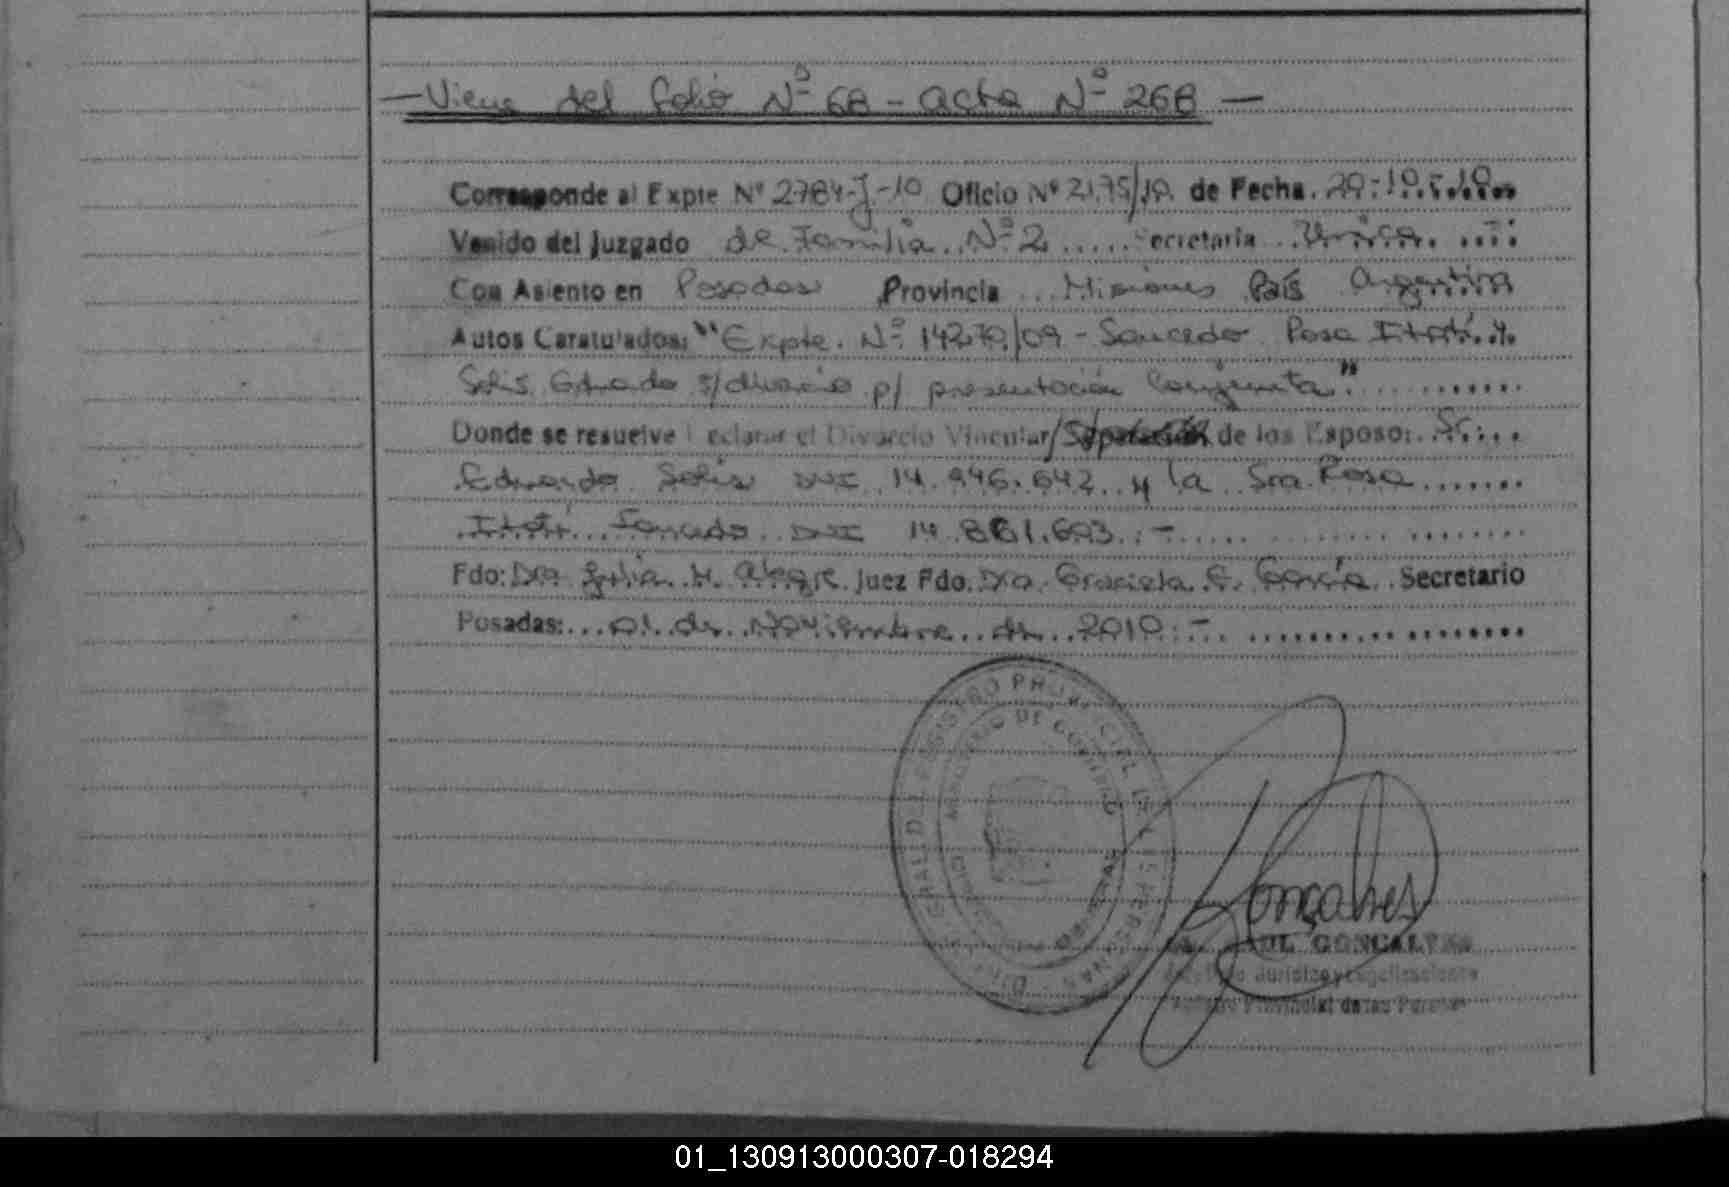 — Viene del folio Nº 68 - acta Nº 268 —
Corresponde al Expte Nº 2784-J-10 Oficio Nº 2175/10 de Fecha. 20-10-10
Venido del Juzgado de Familia Nº 2 Secretaria Única
Con Asiento en Posadas Provincia Misiones País Argentina
Autos Caratulados: "Expte. Nº 14279/09 - Saucedo Rosa Itatí y
Solis Eduardo s/divorcio p/ presentación Conjunta"
Donde se resuelve Declarar el Divorcio Vincular/Separación de los Esposos: Sr.
Eduardo Solis DNI 14.946.642 y la Sra Rosa
Itatí Saucedo DNI 14.881.693.-
Fdo: Dra Julia H. Alegre Juez Fdo. Dra. Graciela E. García Secretario
Posadas: 01 de Noviembre de 2010.-
REGISTRO PROVINCIAL DE LAS PERSONAS
MINISTERIO DE GOBIERNO
Goncalves
RAUL GONCALVES
Juridico y Legalizaciones
Registro Provincial de las Personas
01_130913000307-018294